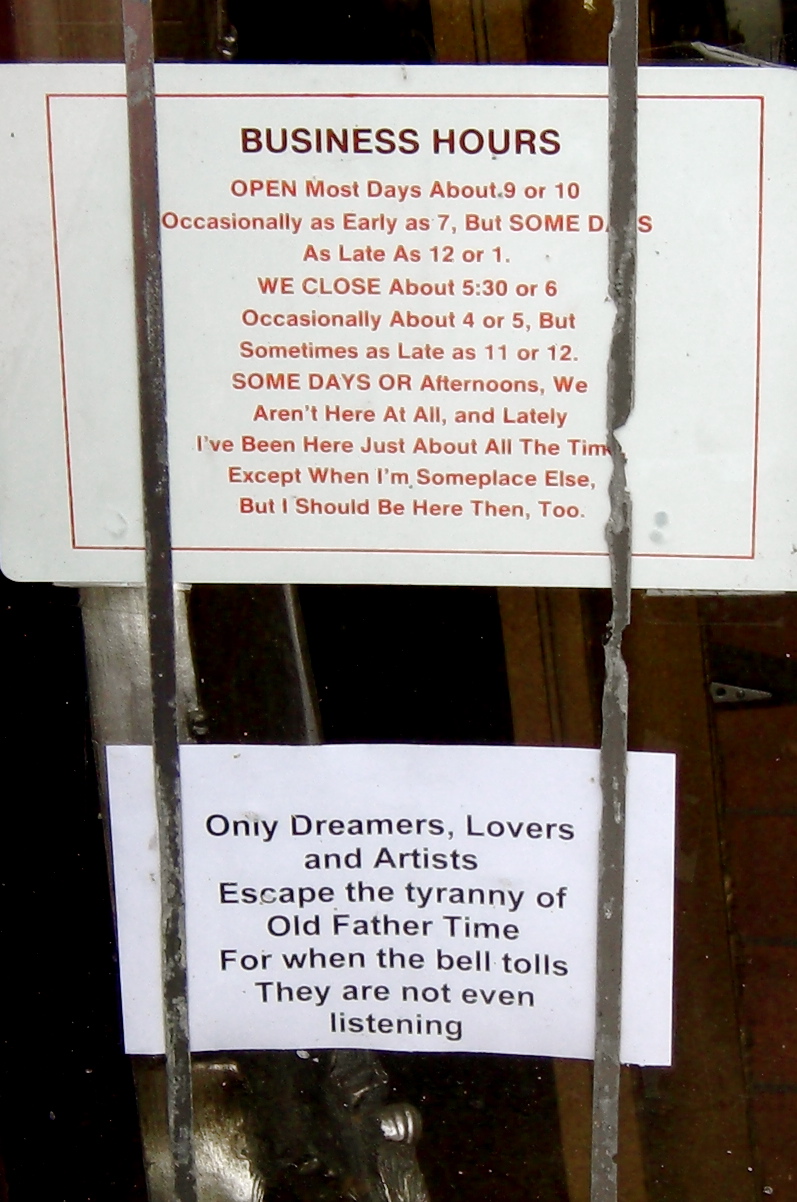 BUSINESS HOURS
OPEN Most Days About 9 or 10
Occasionally as Early as 7, But SOME DAYS
As Late As 12 or 1.
WE CLOSE About 5:30 or 6
Occasionally About 4 or 5, But
Sometimes as Late as 11 or 12.
SOME DAYS OR Afternoons, We
Aren't Here At All, and Lately
I've Been Here Just About All The Time,
Except When I'm Someplace Else,
But I Should Be Here Then, Too.
Only Dreamers, Lovers
and Artists
Escape the tyranny of
Old Father Time
For when the bell tolls
They are not even
listening